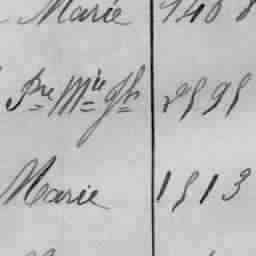 Marie 1408
Pre Mie Jh 2595
Marie 1513